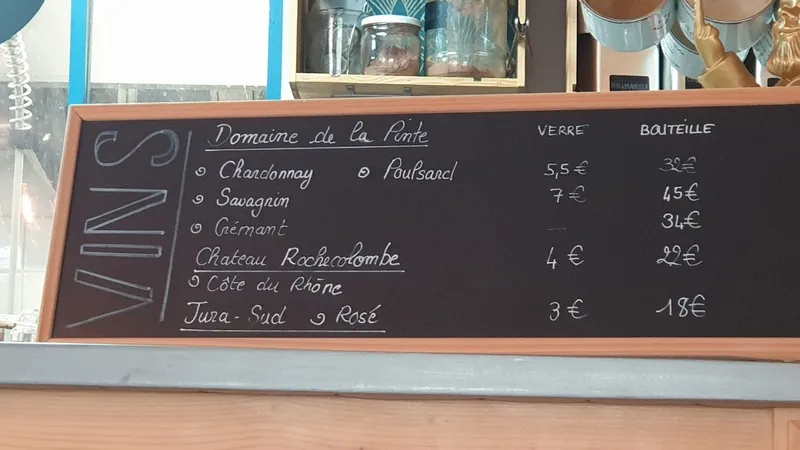 VINS
Domaine de la Pinte VERRE BOUTEILLE
Chardonnay Poulsard 5,5€ 32€
Savagnin 7€ 45€
Crémant --- 34€
Chateau Rochecolombe 4€ 22€
Côte du Rhône
Jura-Sud Rosé 3€ 18€